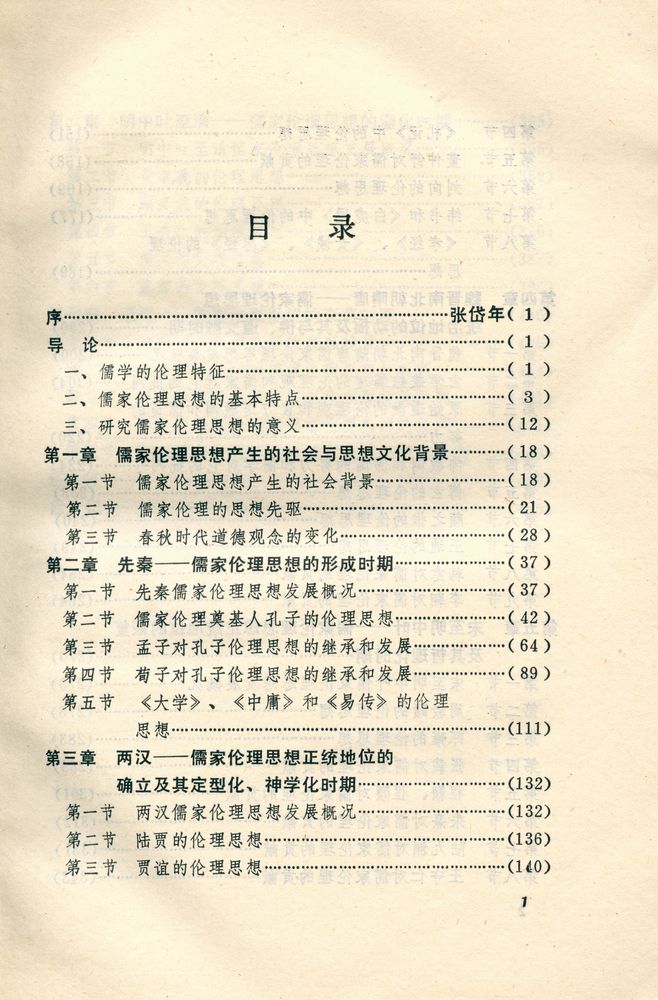 目录
序……………………………………………张岱年( 1 )
导 论……………………………………………( 1 )
一、儒学的伦理特征……………………………( 1 )
二、儒家伦理思想的基本特点…………………( 3 )
三、研究儒家伦理思想的意义…………………(12)
第一章 儒家伦理思想产生的社会与思想文化背景………(18)
第一节 儒家伦理思想产生的社会背景…………(18)
第二节 儒家伦理的思想先驱……………………(21)
第三节 春秋时代道德观念的变化………………(28)
第二章 先秦——儒家伦理思想的形成时期……………(37)
第一节 先秦儒家伦理思想发展概况……………(37)
第二节 儒家伦理奠基人孔子的伦理思想………(42)
第三节 孟子对孔子伦理思想的继承和发展……(64)
第四节 荀子对孔子伦理思想的继承和发展……(89)
第五节 《大学》、《中庸》和《易传》的伦理
思想………………………………………(111)
第三章 两汉——儒家伦理思想正统地位的
确立及其定型化、神学化时期……………(132)
第一节 两汉儒家伦理思想发展概况……………(132)
第二节 陆贾的伦理思想…………………………(136)
第三节 贾谊的伦理思想…………………………(140)
1